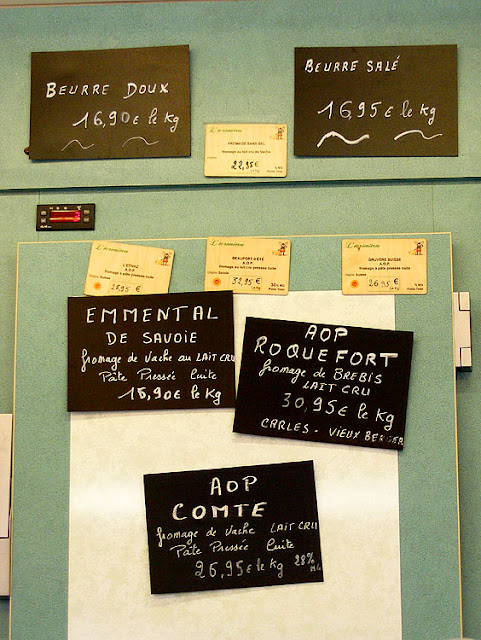 BEURRE DOUX
16,90€ le kg
BEURRE SALÉ
16,95€ le kg
FROMAGE SANS SEL
fromage au lait cru de Vache
22,95€
L'ETIVAZ
A.O.P.
fromage à pâte pressée cuite
BEAUFORT D'ÉTÉ
A.O.P.
fromage au lait cru pressée cuite
32,95€
GRUYERE SUISSE
A.O.P.
fromage à pâte pressée cuite
26,95€
EMMENTAL
DE SAVOIE
fromage de Vache au LAIT CRU
Pâte Pressée Cuite
15,90€ le kg
AOP
ROQUEFORT
fromage de BREBIS
LAIT CRU
30,95€ le Kg
CARLES - VIEUX BERGER
AOP
COMTE
fromage de Vache LAIT CRU
Pâte Pressée Cuite
25,95€ le kg 28%